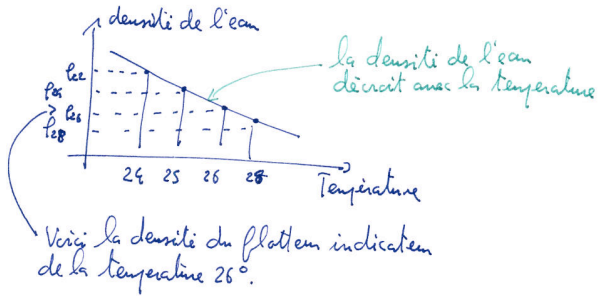 densité de l'eau
la densité de l'eau
décroit avec la température
ρ22
ρ25
> ρ26
ρ28
24 25 26 28
Température
Voici la densité du flotteur indicateur
de la température 26°.